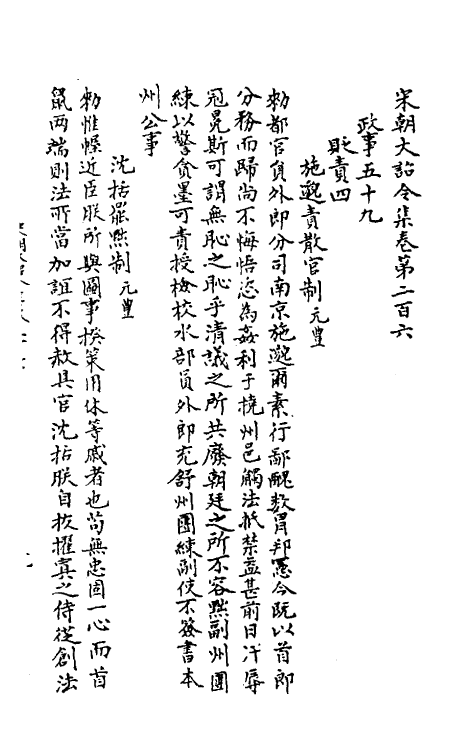 宋朝大詔令集卷第二百六
政事五十九
貶責四
施邈責散官制元豐
勑都官員外郎分司南京施邈爾素行鄙醜數罥邦憲今既以首郎
分務而歸尚不悔悟恣為姦利于撓州邑觸法抵禁益甚前日汙辱
冠冕斯可謂無恥之恥乎清議之所共廢朝廷之所不容黜副州團
練以警貪墨可責授檢校水部員外郎充舒州團練副使不簽書本
州公事
沈括罷黜制元豐
勑惟幄近臣朕所與圖事揆策同休等戚者也苟無忠固一心而首
鼠两端則法所當加誼不得赦具官沈括朕自拔擢寘之侍從創法